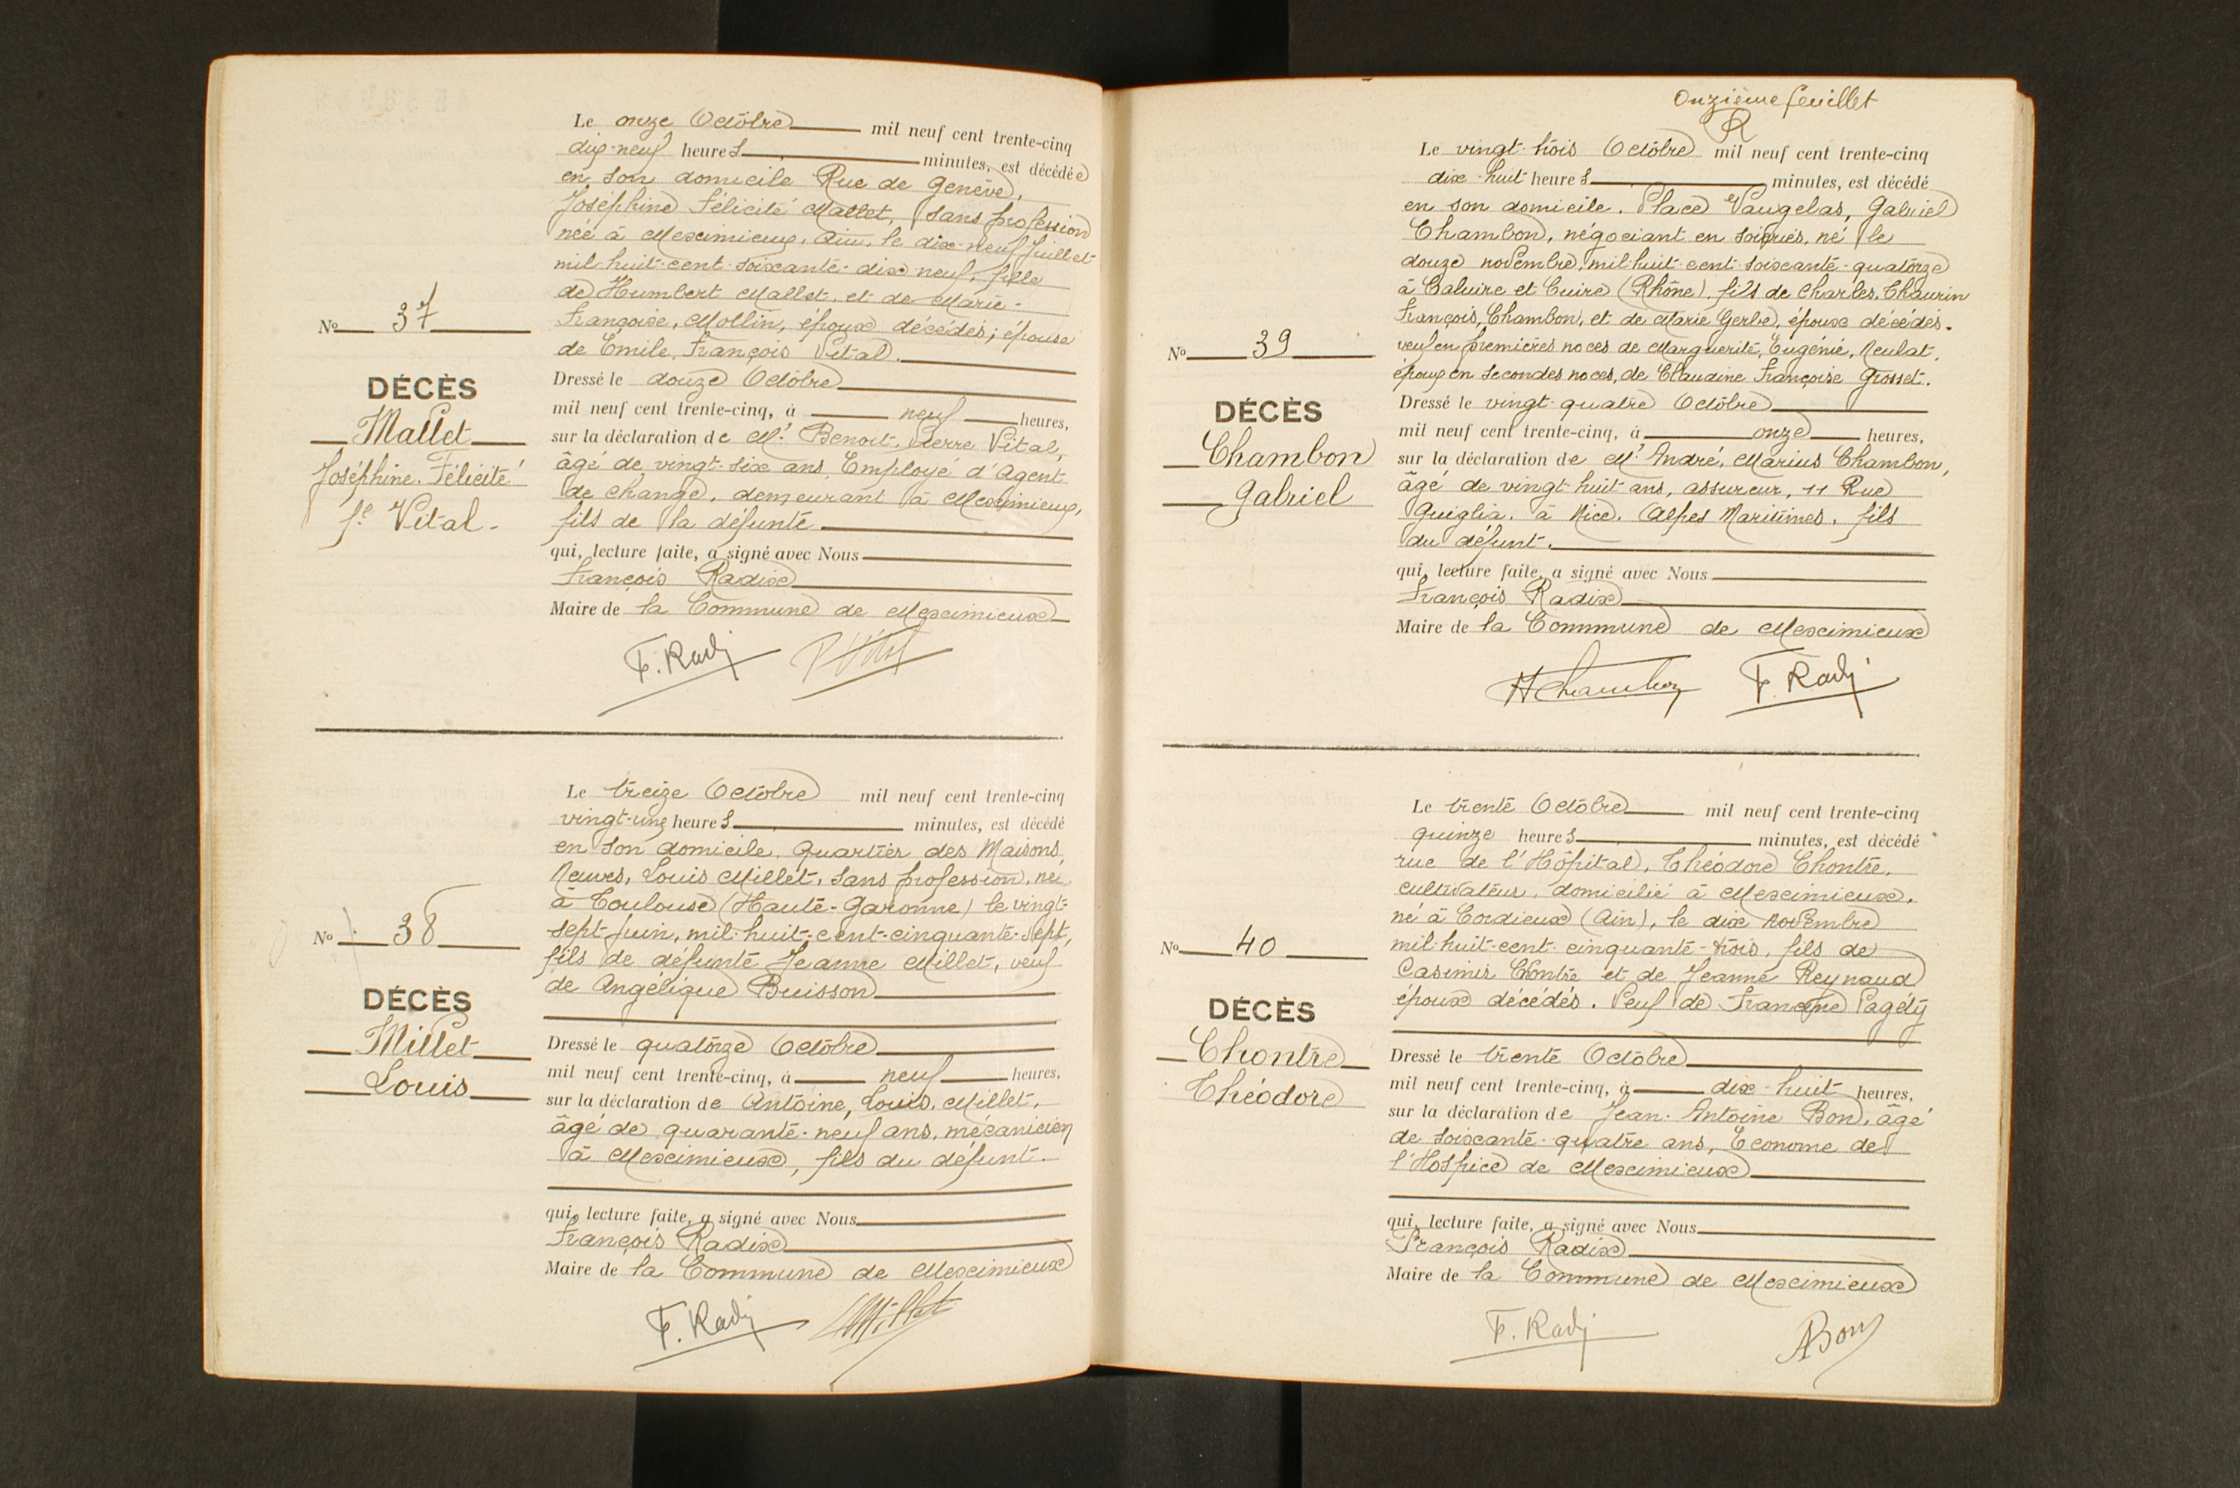 Le onze Octobre mil neuf cent trente-cinq
dix-neuf heures minutes, est décédée
en son domicile Rue de Genève,
Joséphine Félicité Mallet, sans profession
née à Meximieux, Ain, le dix-neuf Juillet
mil-huit-cent-soixante-dix neuf, fille
de Humbert Mallet, et de Marie-
Françoise, Mollin, époux décédés; épouse
de Émile, François Vital.
No 37
DÉCÈS
Mallet
Joséphine. Félicité
fe Vital-
Dressé le douze Octobre
mil neuf cent trente-cinq, à neuf heures,
sur la déclaration de Mr Benoit, Pierre Vital,
âgé de vingt-six ans, Employé d'Agent
de change, demeurant à Meximieux,
fils de la défunte
qui, lecture faite, a signé avec Nous
François Radix
Maire de la Commune de Meximieux
F. Radix P Vital
Le treize Octobre mil neuf cent trente-cinq
vingt-une heures minutes, est décédé
en son domicile. Quartier des Maisons
Neuves, Louis Millet, sans profession, né
à Toulouse (Haute-Garonne) le vingt-
sept Juin, mil-huit-cent-cinquante-sept,
fils de défunte Jeanne Millet, veuf
de Angélique Buisson
No 38
DÉCÈS
Millet
Louis
Dressé le quatorze Octobre
mil neuf cent trente-cinq, à neuf heures,
sur la déclaration de Antoine, Louis, Millet,
âgé de quarante-neuf ans, mécanicien
à Meximieux, fils du défunt.
qui, lecture faite, a signé avec Nous
François Radix
Maire de la Commune de Meximieux
F. Radix Millet
Onzième feuillet
R
Le vingt-trois Octobre mil neuf cent trente-cinq
dix-huit heures minutes, est décédé
en son domicile. Place Vaugelas, Gabriel
Chambon, négociant en soieries, né le
douze novembre, mil-huit-cent-soixante-quatorze
à Caluire et Cuire (Rhône), fils de Charles, Thaurin
François, Chambon, et de Marie Gerbe, époux décédés.
veuf en premières noces de Marguerite, Eugénie, Neulat,
époux en secondes noces, de Claudine Françoise Grosset.
No 39
DÉCÈS
Chambon
Gabriel
Dressé le vingt-quatre Octobre
mil neuf cent trente-cinq, à onze heures,
sur la déclaration de Mr André, Marius Chambon,
âgé de vingt-huit ans, assureur, 11 Rue
Guiglia. à Nice. (Alpes Maritimes. fils
du défunt.
qui, lecture faite, a signé avec Nous
François Radix
Maire de la Commune de Meximieux
A Chambon F. Radix
Le trente Octobre mil neuf cent trente-cinq
quinze heures minutes, est décédé
rue de l'Hôpital, Théodore Chontre,
cultivateur, domicilié à Meximieux.
né à Cordieux (Ain), le dix Novembre
mil-huit-cent-cinquante-trois, fils de
Casimir Chontre et de Jeanne Reynaud
époux décédés. Veuf de Francine Pagély
No 40
DÉCÈS
Chontre
Théodore
Dressé le trente Octobre
mil neuf cent trente-cinq, à dix-huit heures,
sur la déclaration de Jean-Antoine Bon, âgé
de soixante-quatre ans, Econome de
l'Hospice de Meximieux
qui, lecture faite, a signé avec Nous
François Radix
Maire de la Commune de Meximieux
F. Radix ABon